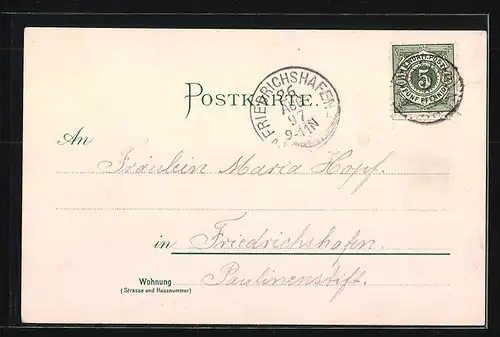 POSTKARTE.
FRIEDRICHSHAFEN
26
AUG
97
9-11N
5
FÜNF PFENNIG
An
Fräulein Maria Hopf.
in Friedrichshafen.
Wohnung
(Strasse und Hausnummer)
Paulinenstift.